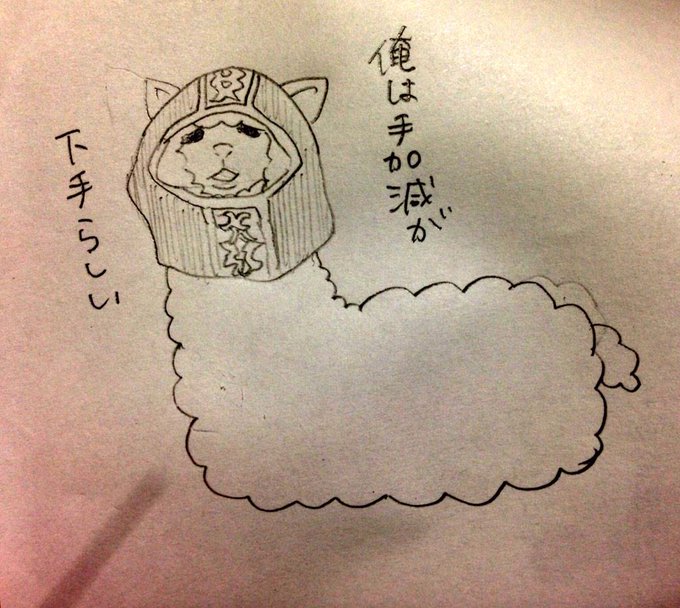 俺は手加減が
下手らしい